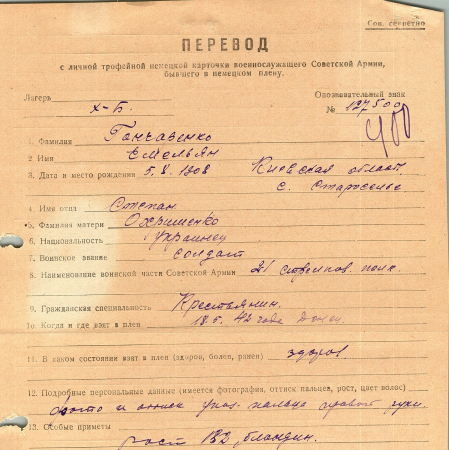 Сов. секретно
ПЕРЕВОД
с личной трофейной немецкой карточки военнослужащего Советской Армии,
бывшего в немецком плену.
Лагерь Опознавательный знак
X-Б. № 127500
1. Фамилия Гончаренко
2 Имя Емельян
3. Дата и место рождения 5.8.1908 Киевская област
с. Старoселье
4. Имя отца Степан
5. Фамилия матери Охрименко
6. Национальность украинец
7. Воинское звание солдат
8. Наименование воинской части Советской Армии 21 стрелков. полк.
9. Гражданская специальность Крестьянин.
10. Когда и где взят в плен 18.5.42 года
11. В каком состоянии взят в плен (здоров, болен, ранен) здоров
12. Подробные персональные данные (имеется фотография, оттиск пальцев, рост, цвет волос)
фото и оттиск указ. пальца правой руки.
13. Особые приметы
рост 182 блондин.